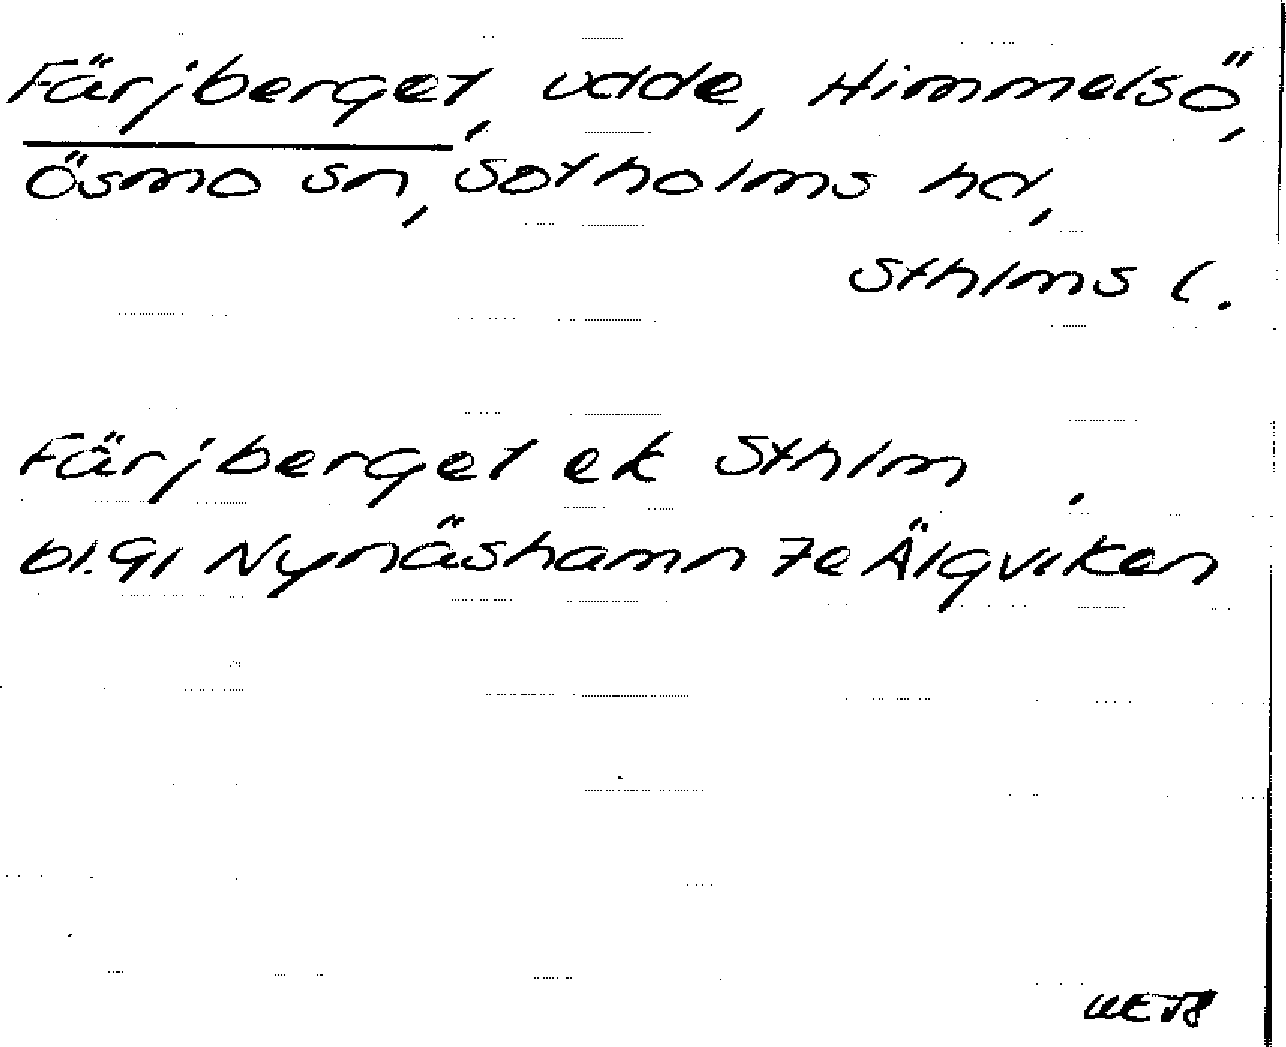 Färjberget, udde, Himmelsö,
Ösmo sn, Sotholms hd,
Sthlms l.
Färjberget ek Sthlm
bl. 91 Nynäshamn 7e Älgviken